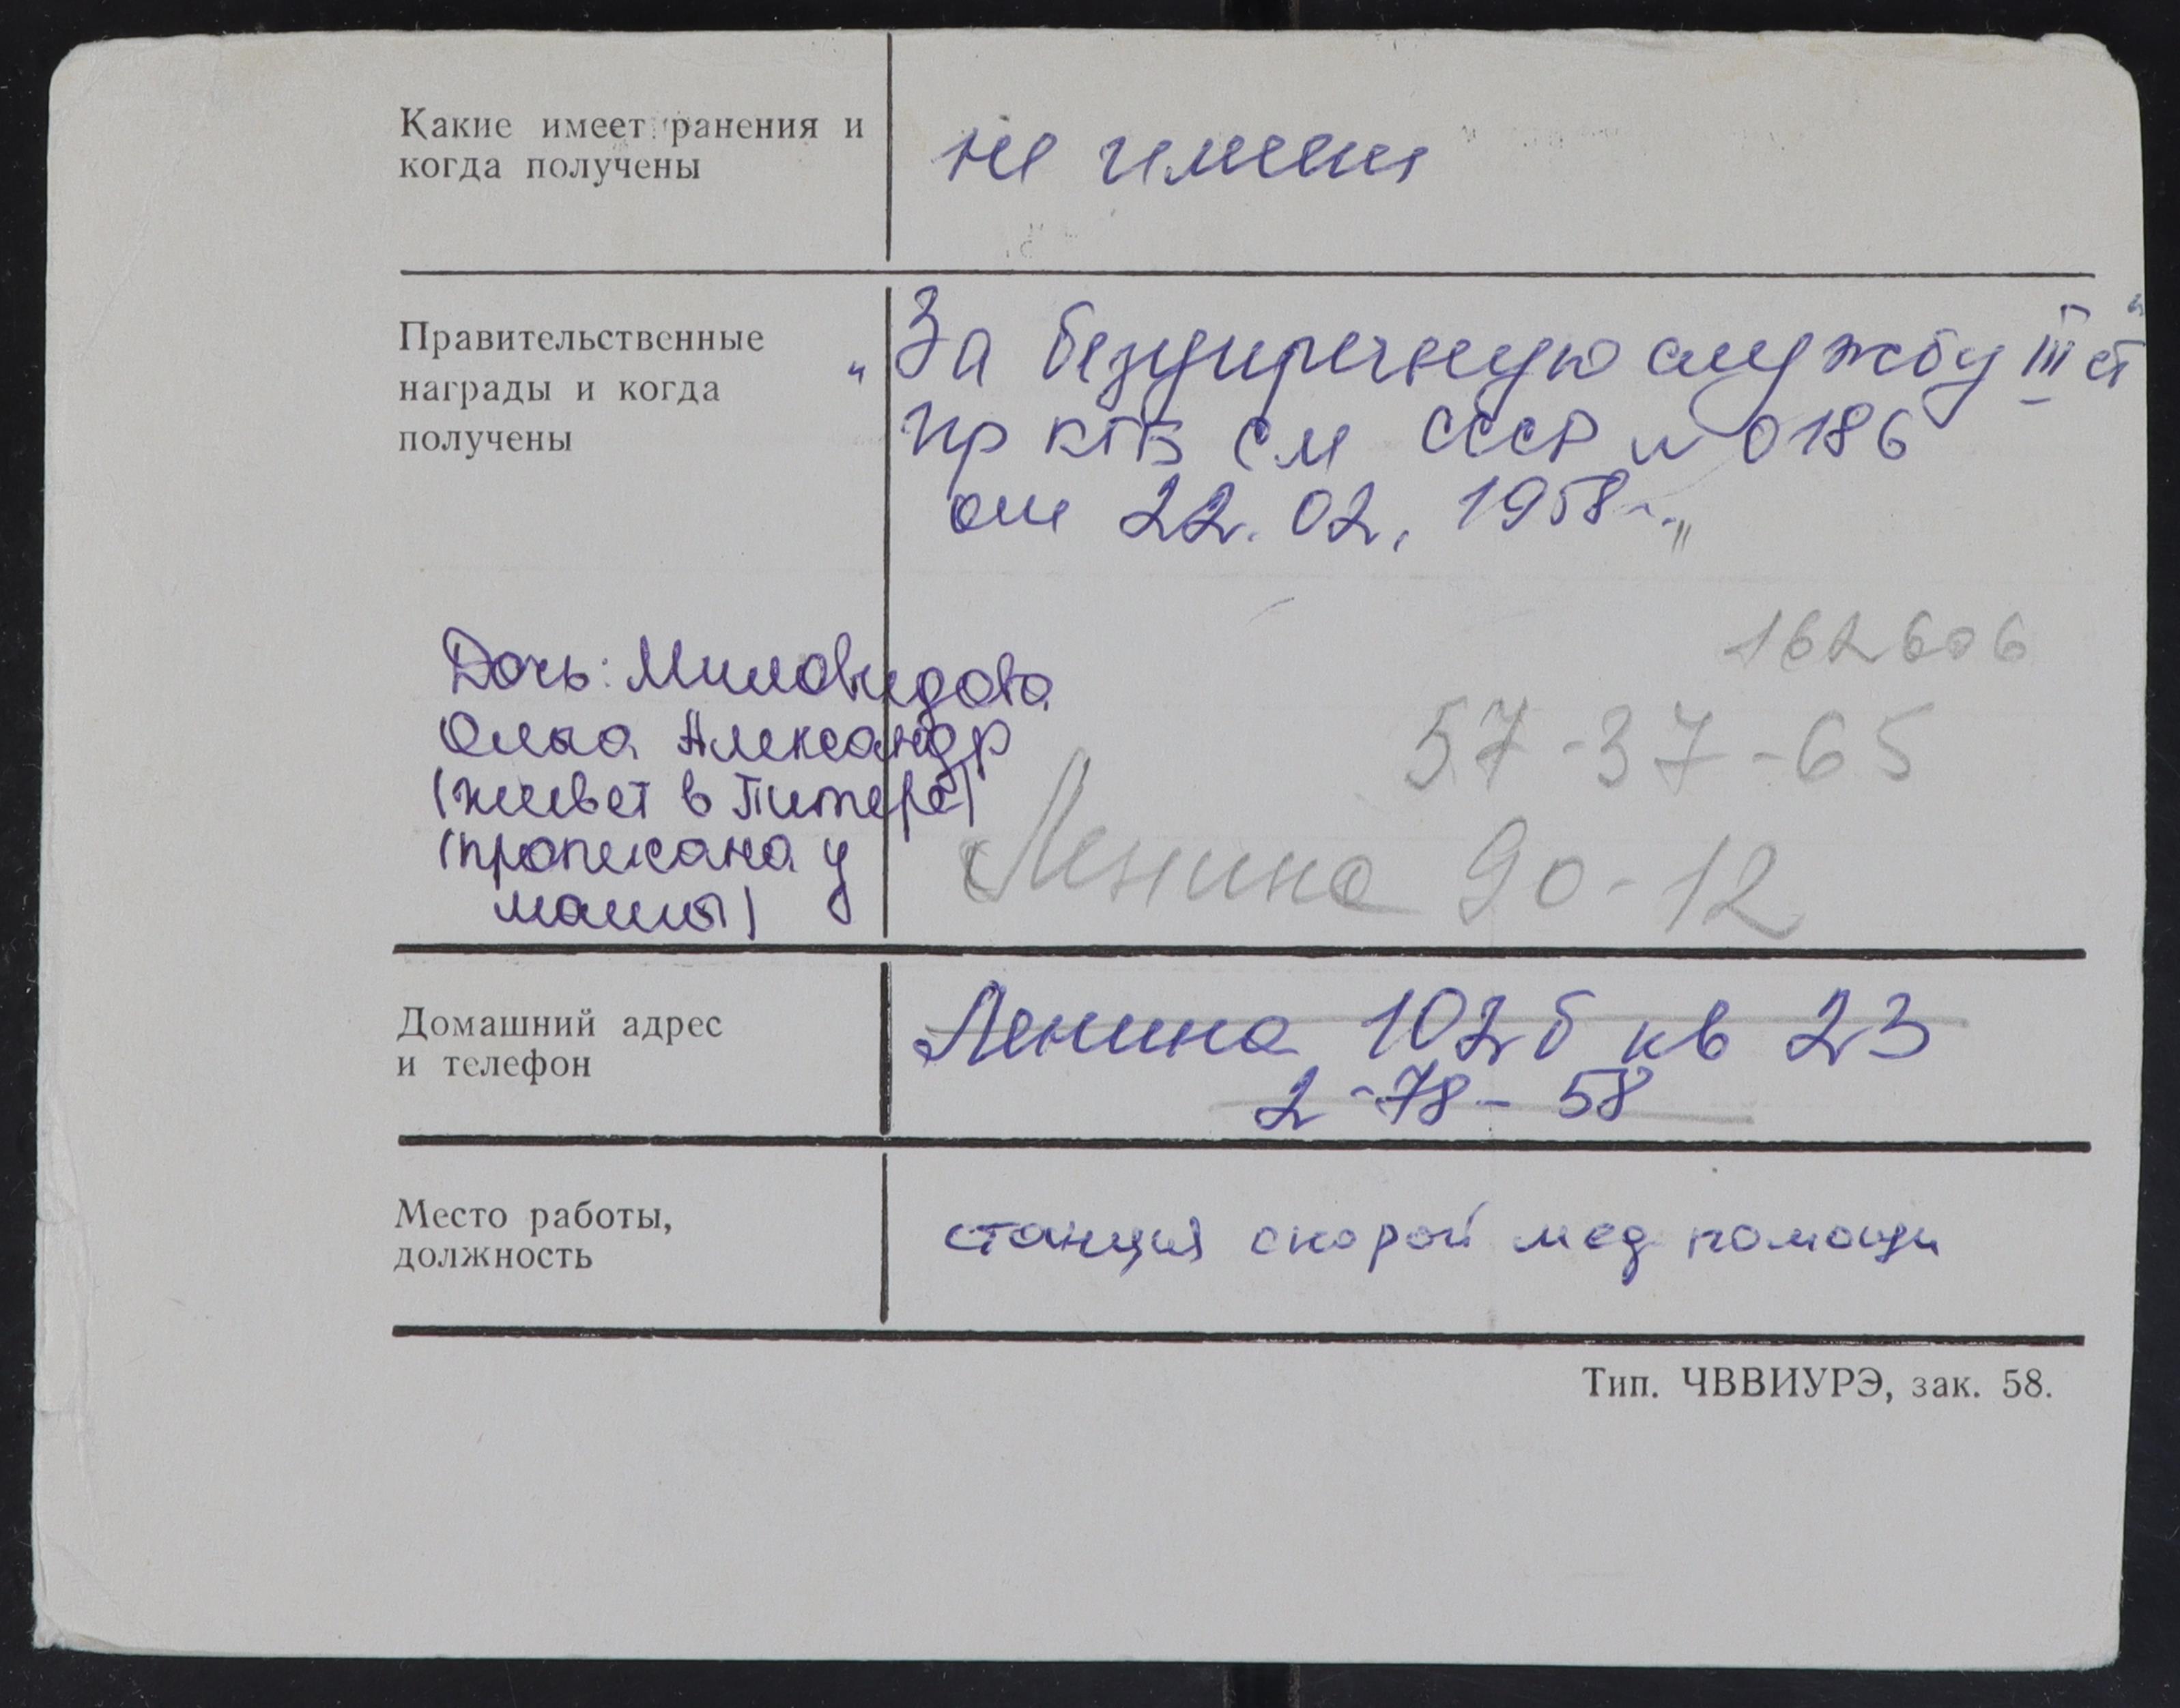 Какие имеет ранения и
когда получены
не имеет
Правительственные
награды и когда
получены
"За безупречную службу III ст"
Пр КГБ СМ СССР № 0186
от 22.02.1958
162606
57-37-65
Ленина 90-12
Дочь: Миловидова
Ольга Александр
(живет в Питере)
(прописана у
мамы)
Домашний адрес
и телефон
Ленина 102б кв 23
2-78-58
Место работы,
должность
станция скорой мед помощи
Тип. ЧВВИУРЭ, зак. 58.